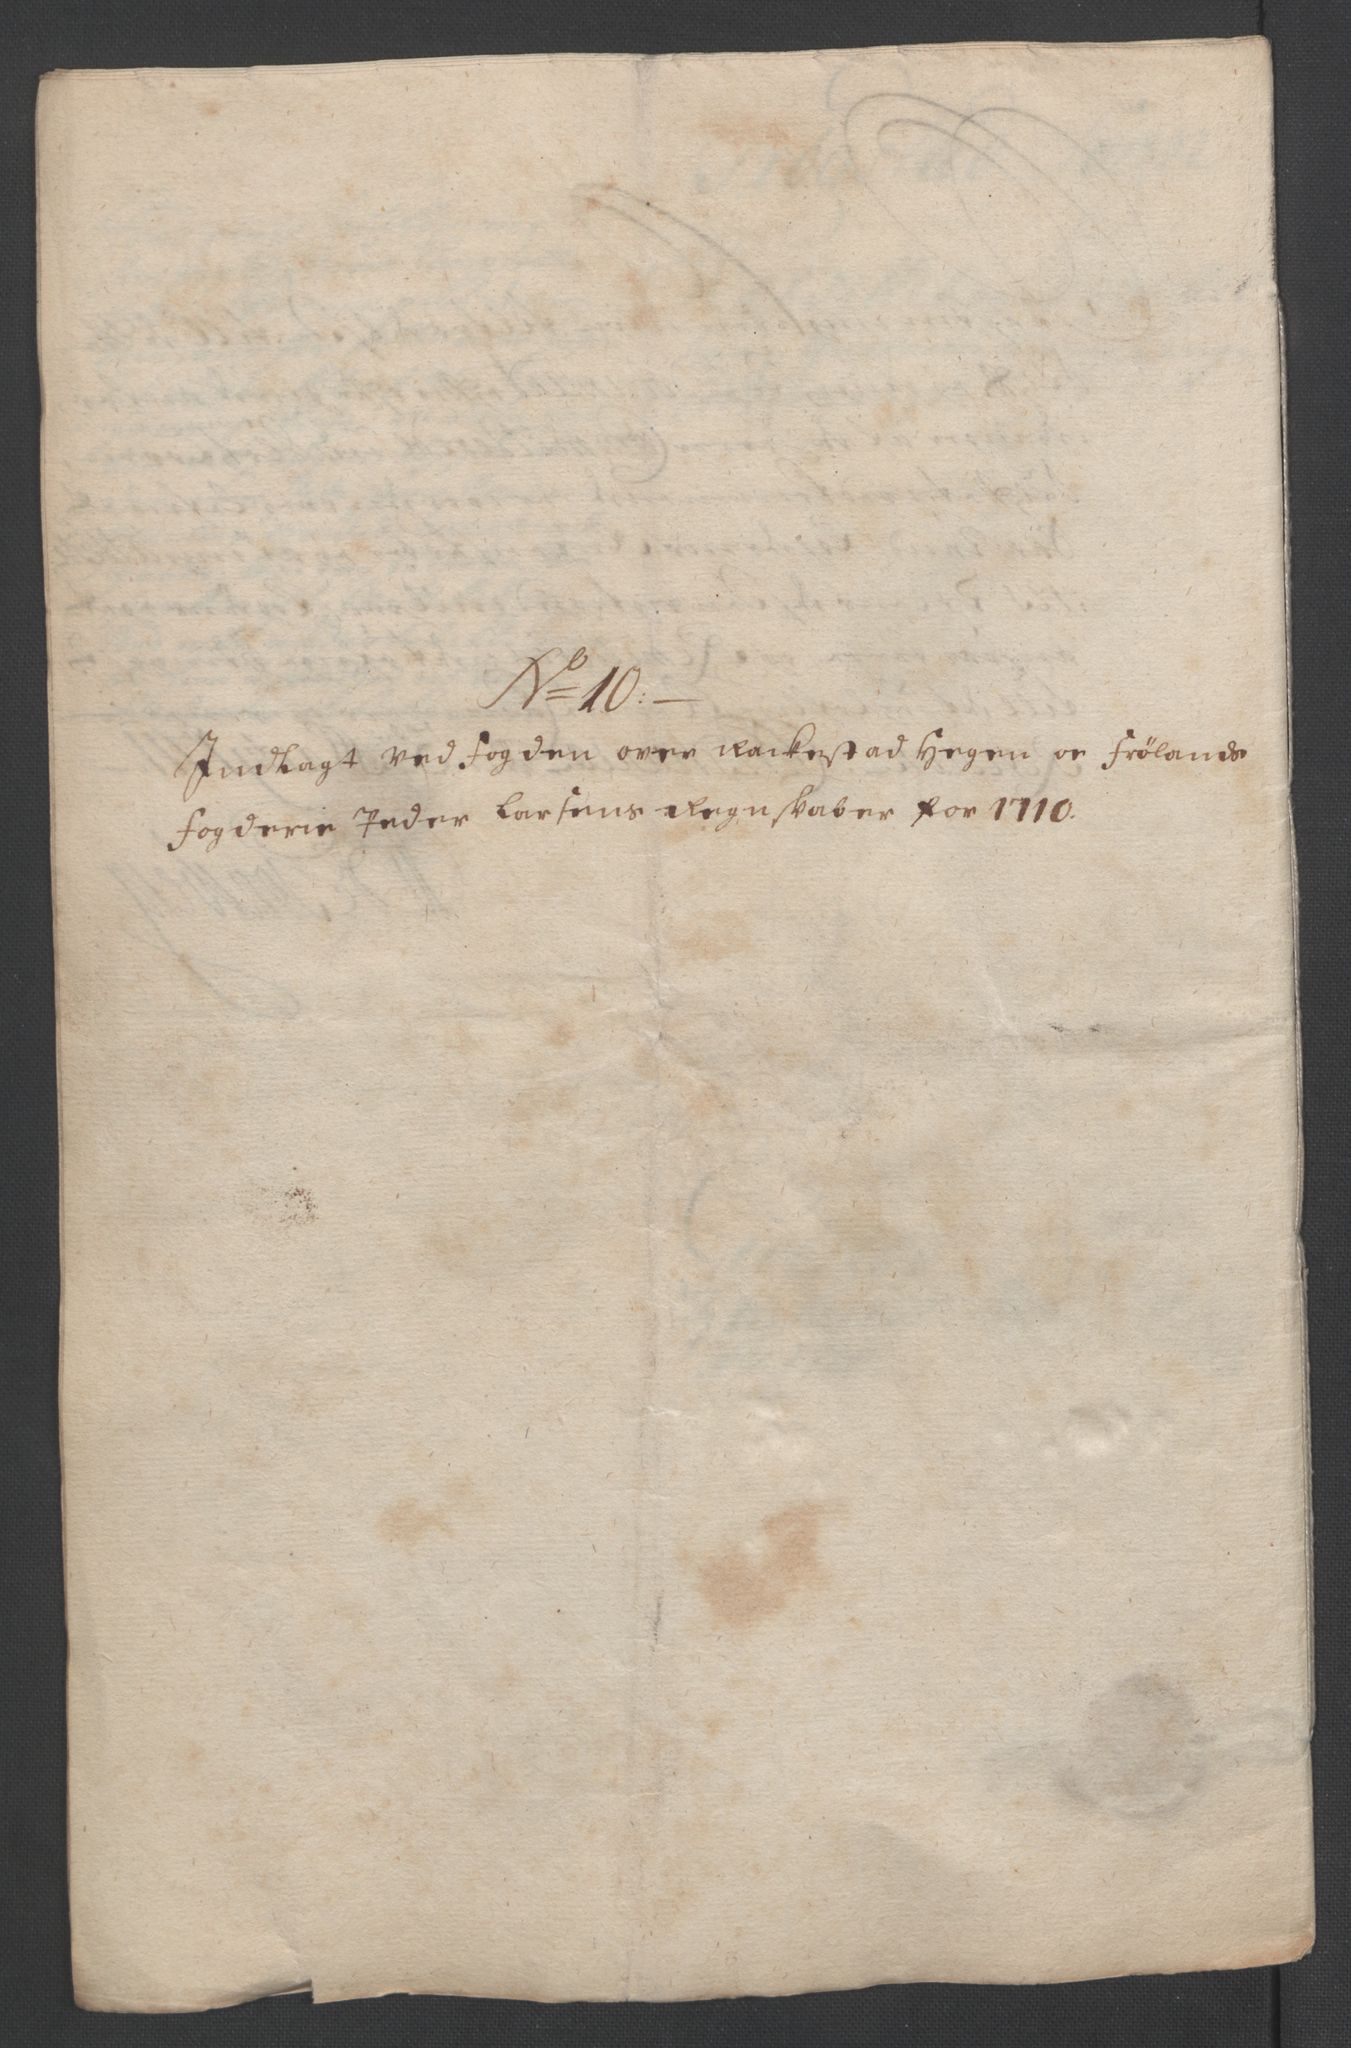 No 10:—
Indlagt ved fogden over Rackestad Hegen oc Frølands
fogderie Peder Larsens Regnskaber for 1710.